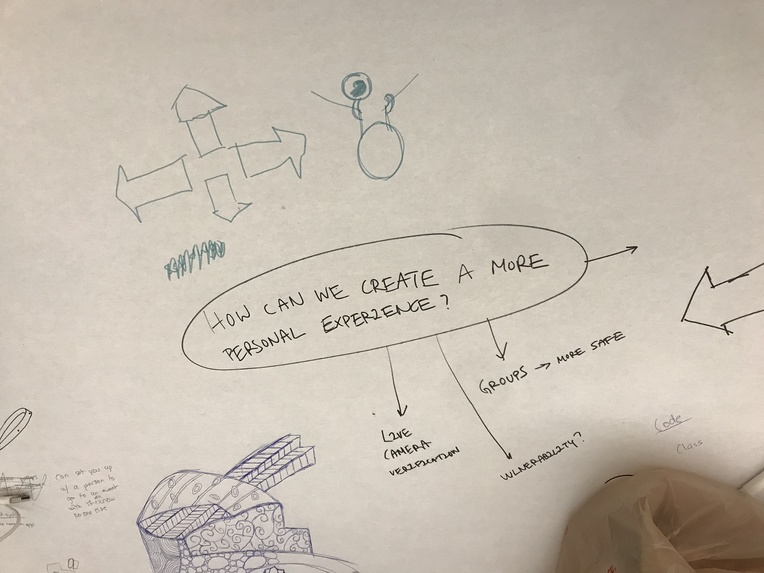 HOW CAN WE CREATE A MORE
PERSONAL EXPERIENCE?
GROUPS → MORE SAFE
LIVE
CAMERA
VERIFICATION
VULNERABILITY?
Code
Class
can set you up
w/ a person to
go to an event